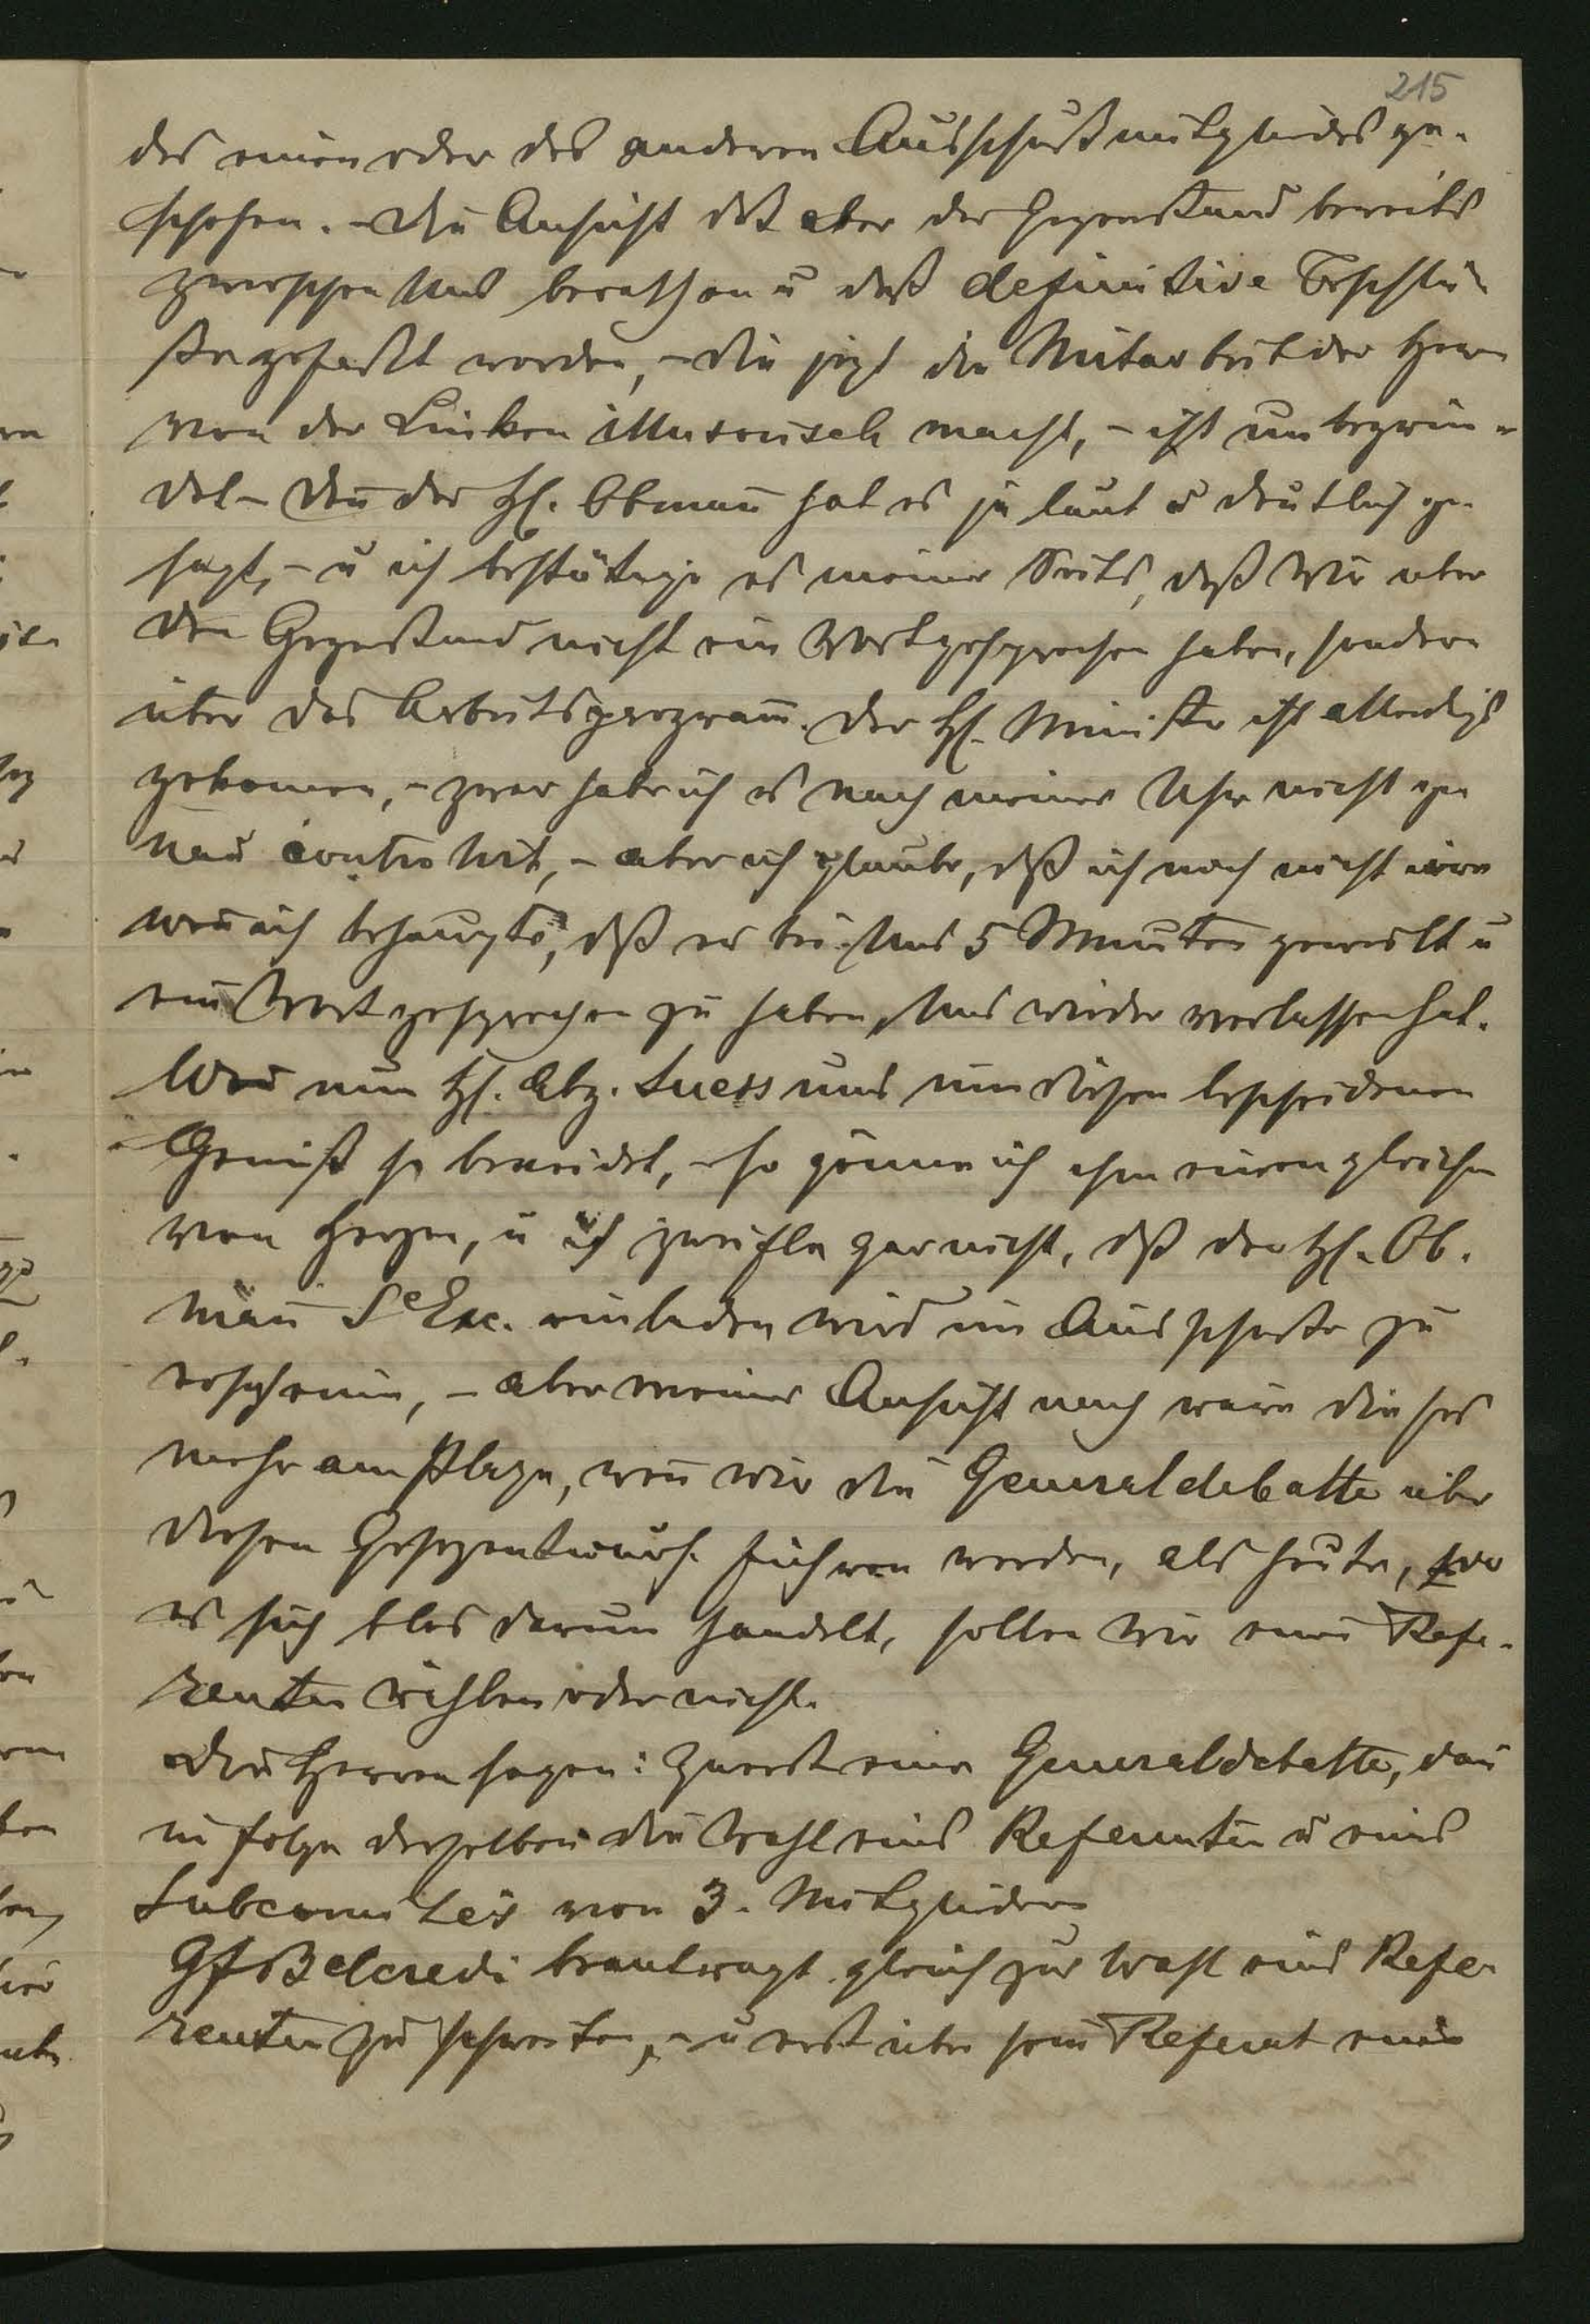 215
des einen oder des anderen Ausschußmitgliedes ge-
schehen. – Die Ansicht daß aber der Gegenstand bereits
zwischen Uns berathen u daß definitive Beschlü-
ße gefaßt worden, – die jezt die Mitarbeit der Herrn
von der Linken illusorisch macht, – ist unbegrün-
det – den̅ der H. Obman̅ hat es ja laut u deutlich ge-
sagt, – u ich bestätige es meiner Seits, daß Wir uber
den Gegenstand nicht ein Wort gesprochen haben, sondern
über das Arbeitsprogram̅. Der H. Minister ist allerdigs
gekomen, – zwar habe ich es nach meiner Uhr nicht ge
nau controlirt, – aber ich glaube, dß ich noch nicht irre
wen̅ ich behaupte, dß er bei Uns 5 Minuten geweilt u
ein Wort gesprochen zu haben, Uns wieder verlassen hat.
Wen̅ nun H. Abg. Suess uns um diesen bescheidenen
Genuß so beneidet, – so gönne ich ihm einen gleichen
von Herzen, u ich zweifle gar nicht, dß der H. Ob-
man̅ Se Exc. einladen wird im Ausschuße zu
erscheinen, – aber meiner Ansicht nach wäre dieses
mehr am Platze, wen̅ wir die Generaldebatte über
diesen Gesezentwurf. führen werden, als heute, wo
es sich blos darum handelt, sollen Wir einen Refe-
renten wählen oder nicht.
Die Herren sagen: Zuerst eine Generaldebatte, dan̅
in folge derselben die Wahl eines Referenten u eines
Subcomités von 3. Mitgliedern
Gf Belcredi beantragt gleich zur Wahl eines Refe-
renten zu schreiten, – u erst über sein Referat eine